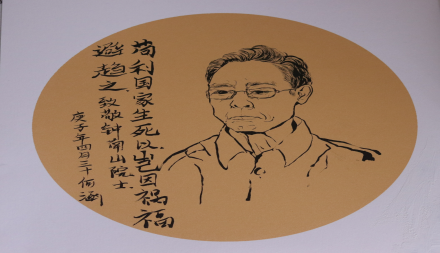 苟利国家生死以岂因祸福
避趋之 致敬钟南山院士
庚子年四月三十何涵